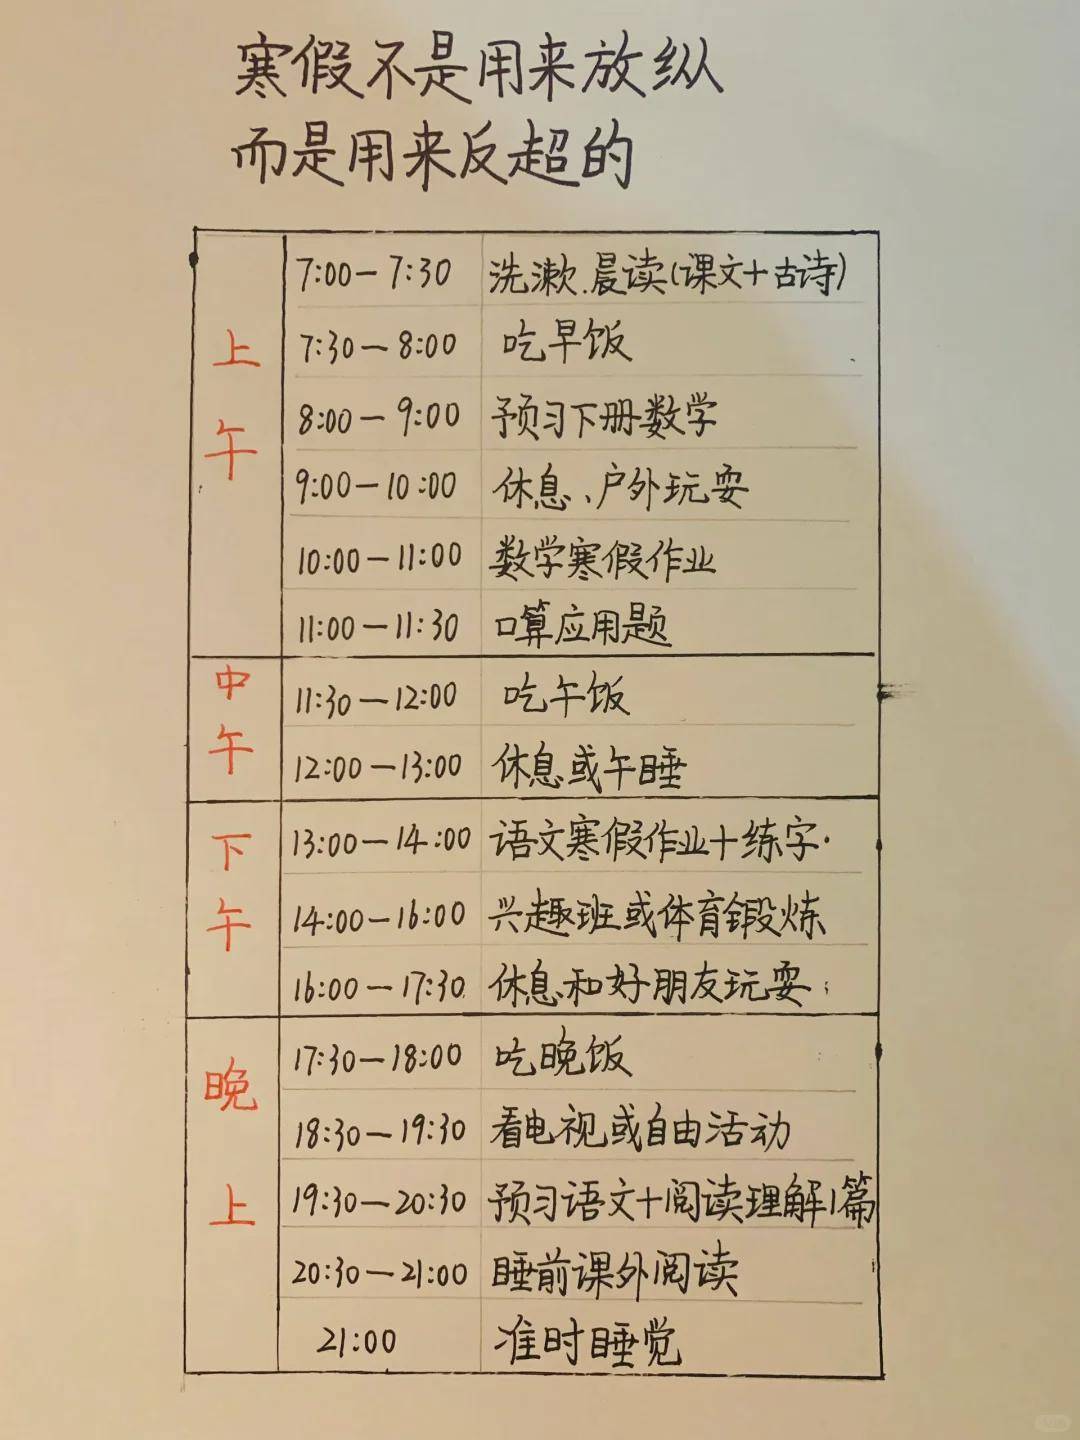 寒假不是用来放纵
而是用来反超的
上午
7:00—7:30 洗漱、晨读(课文+古诗)
7:30—8:00 吃早饭
8:00—9:00 预习下册数学
9:00—10:00 休息、户外玩耍
10:00—11:00 数学寒假作业
11:00—11:30 口算应用题
中午
11:30—12:00 吃午饭
12:00—13:00 休息或午睡
下午
13:00—14:00 语文寒假作业+练字.
14:00—16:00 兴趣班或体育锻炼
16:00—17:30 休息和好朋友玩耍
晚上
17:30—18:00 吃晚饭
18:30—19:30 看电视或自由活动
19:30—20:30 预习语文+阅读理解1篇
20:30—21:00 睡前课外阅读
21:00 准时睡觉